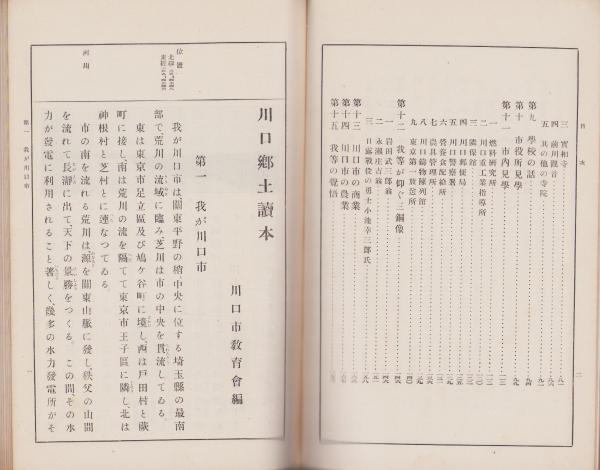 目次
三 實相寺
四 前川觀音
五 其の他の寺院
第九 學校の話
第十 市役所見學
第十一 市內見學
一 燃料研究所
二 川口重工業指導所
三 隣保館
四 川口郵便局
五 川口警察署
六 營養食配給所
七 農具管理所
八 川口鑄物陳列館
九 東京第一放送所
第十二 我等が仰ぐ三銅像
一 岩田武三郎翁
二 永瀨庄吉翁
三 日露戰役の勇士小池幸三郎氏
第十三 川口市の商業
第十四 川口市の農業
第十五 我等の覺悟
二
川口鄕土讀本
川口市敎育會編
第一 我が川口市
位置
我が川口市は關東平野の稍中央に位する埼玉縣の最南
部で荒川の流域に臨み芝川は市の中央を貫流してゐる。
東は東京市足立區及び鳩ケ谷町に境し、西は戶田村と蕨
町に接し、南は荒川の流を隔てて東京市王子區に隣し、北は
神根村と芝村とに連なつてゐる。
河川
市の南を流れる荒川は源を關東山脈に發し、秩父の山間
を流れて長瀞に出て、天下の景勝をつくる。この間その水
力が發電に利用されること著しく、幾多の水力發電所がそ
第一 我が川口市
一